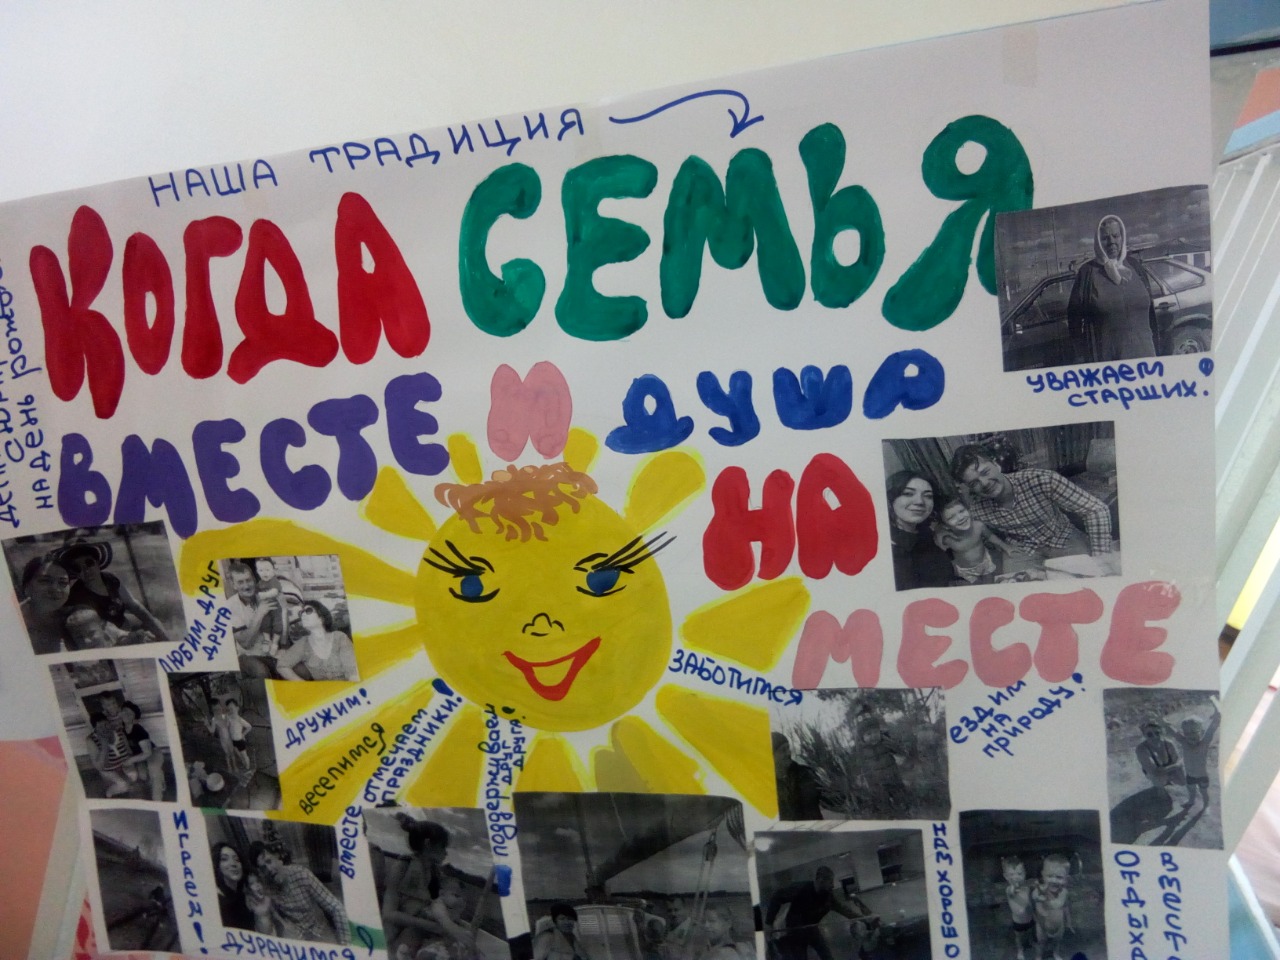 НАША ТРАДИЦИЯ
КОГДА СЕМЬЯ
ВМЕСТЕ И ДУША
НА
МЕСТЕ
на день рожд
УВАЖАЕМ
СТАРШИХ!
ЛЮБИМ ДРУГ
ДРУГА
ДРУЖИМ!
ВЕСЕЛИМСЯ
ВМЕСТЕ ОТМЕЧАЕМ
ПРАЗДНИКИ!
поддерживаем
друг
друга!
ЗАБОТИМСЯ
ЕЗДИМ
НА
ПРИРОДУ!
ИГРАЕМ!
ДУРАЧИМСЯ